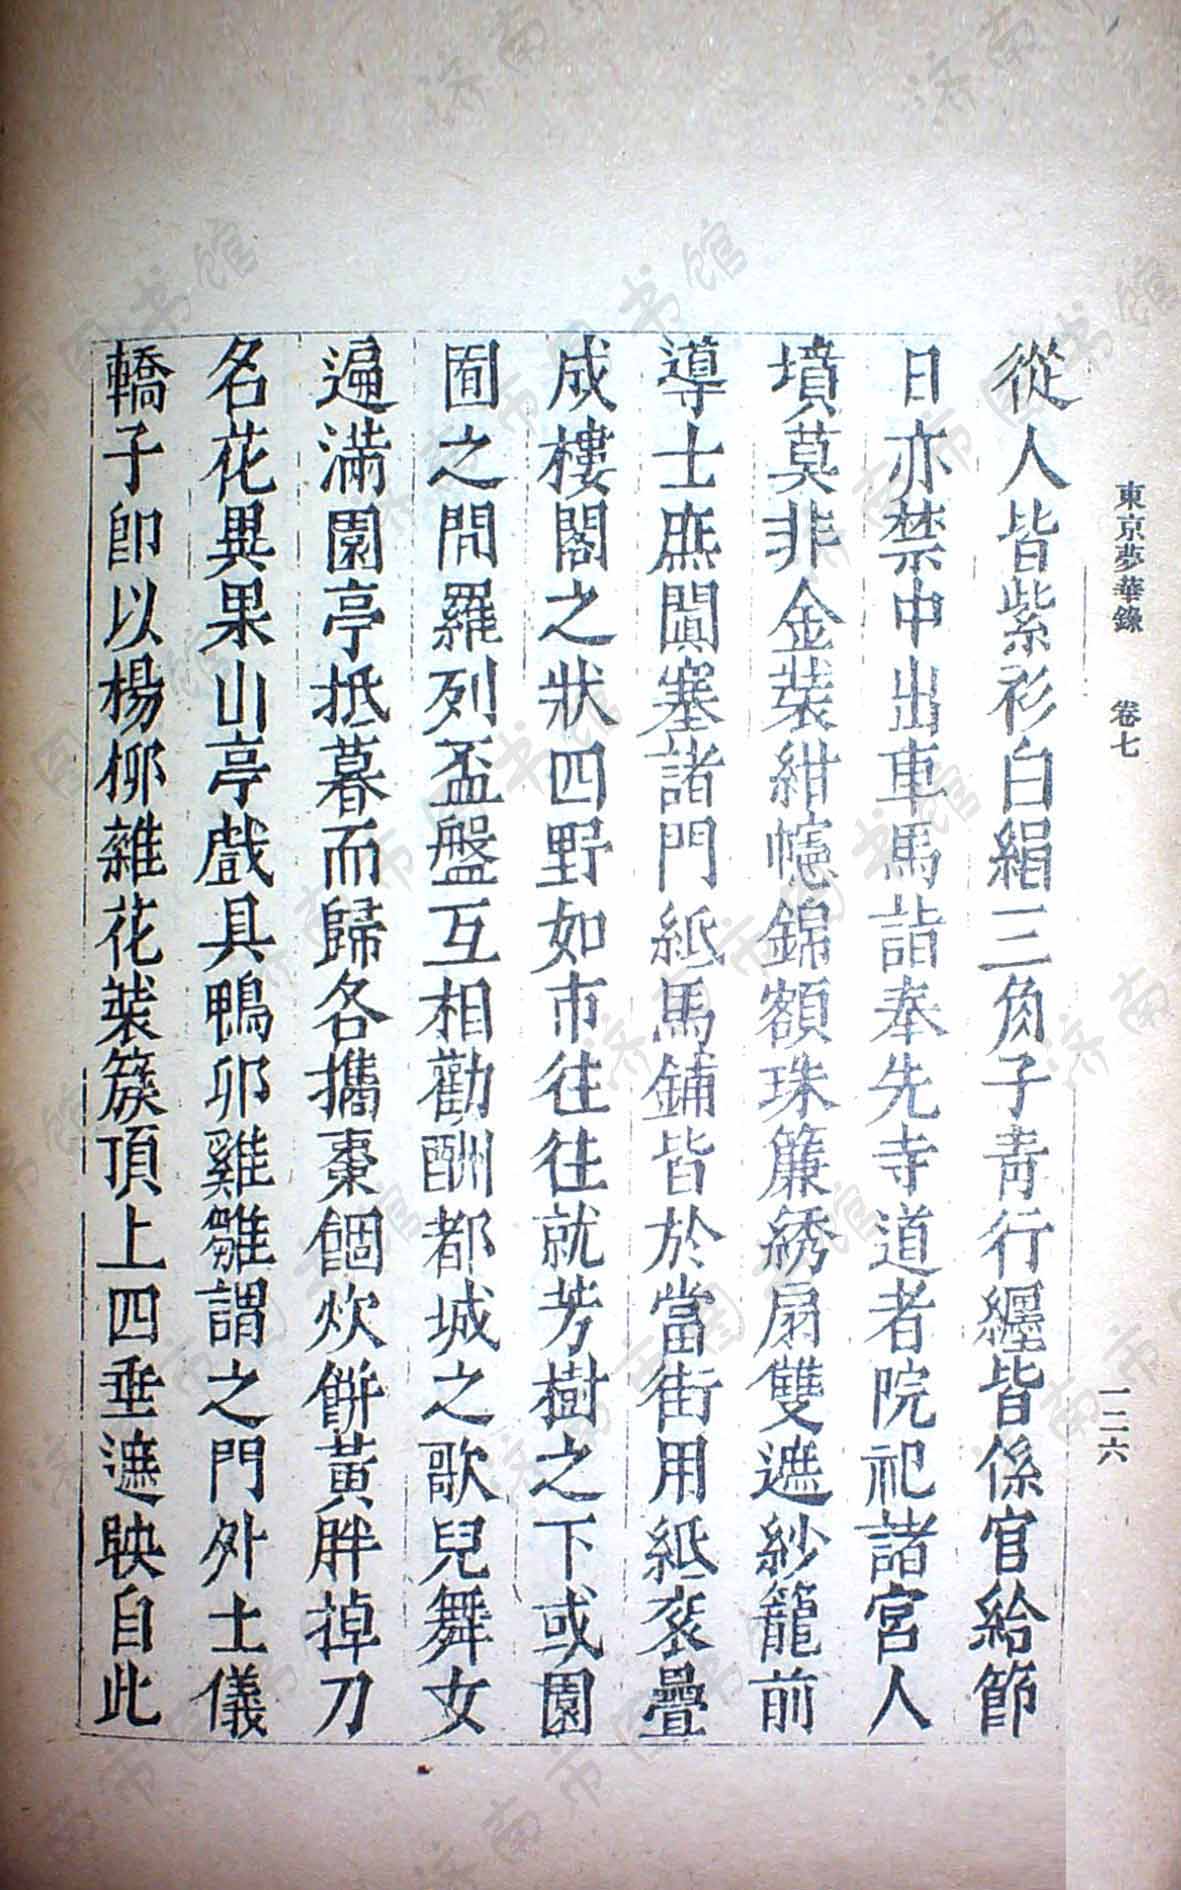 東京夢華錄 卷七 一二六
從人皆紫衫白絹三角子青行纏皆係官給節
日亦禁中出車馬詣奉先寺道者院祀諸宮人
墳莫非金裝紺幰錦額珠簾綉扇雙遮紗籠前
導士庶闐塞諸門紙馬鋪皆於當街用紙衮疊
成樓閣之狀四野如市往往就芳樹之下或園
囿之間羅列盃盤互相勸酬都城之歌兒舞女
遍滿園亭抵暮而歸各攜棗䭅炊餅黃胖掉刀
名花異果山亭戲具鴨卵雞雛謂之門外土儀
轎子卽以楊柳雜花裝簇頂上四垂遮映自此
济南市图书馆